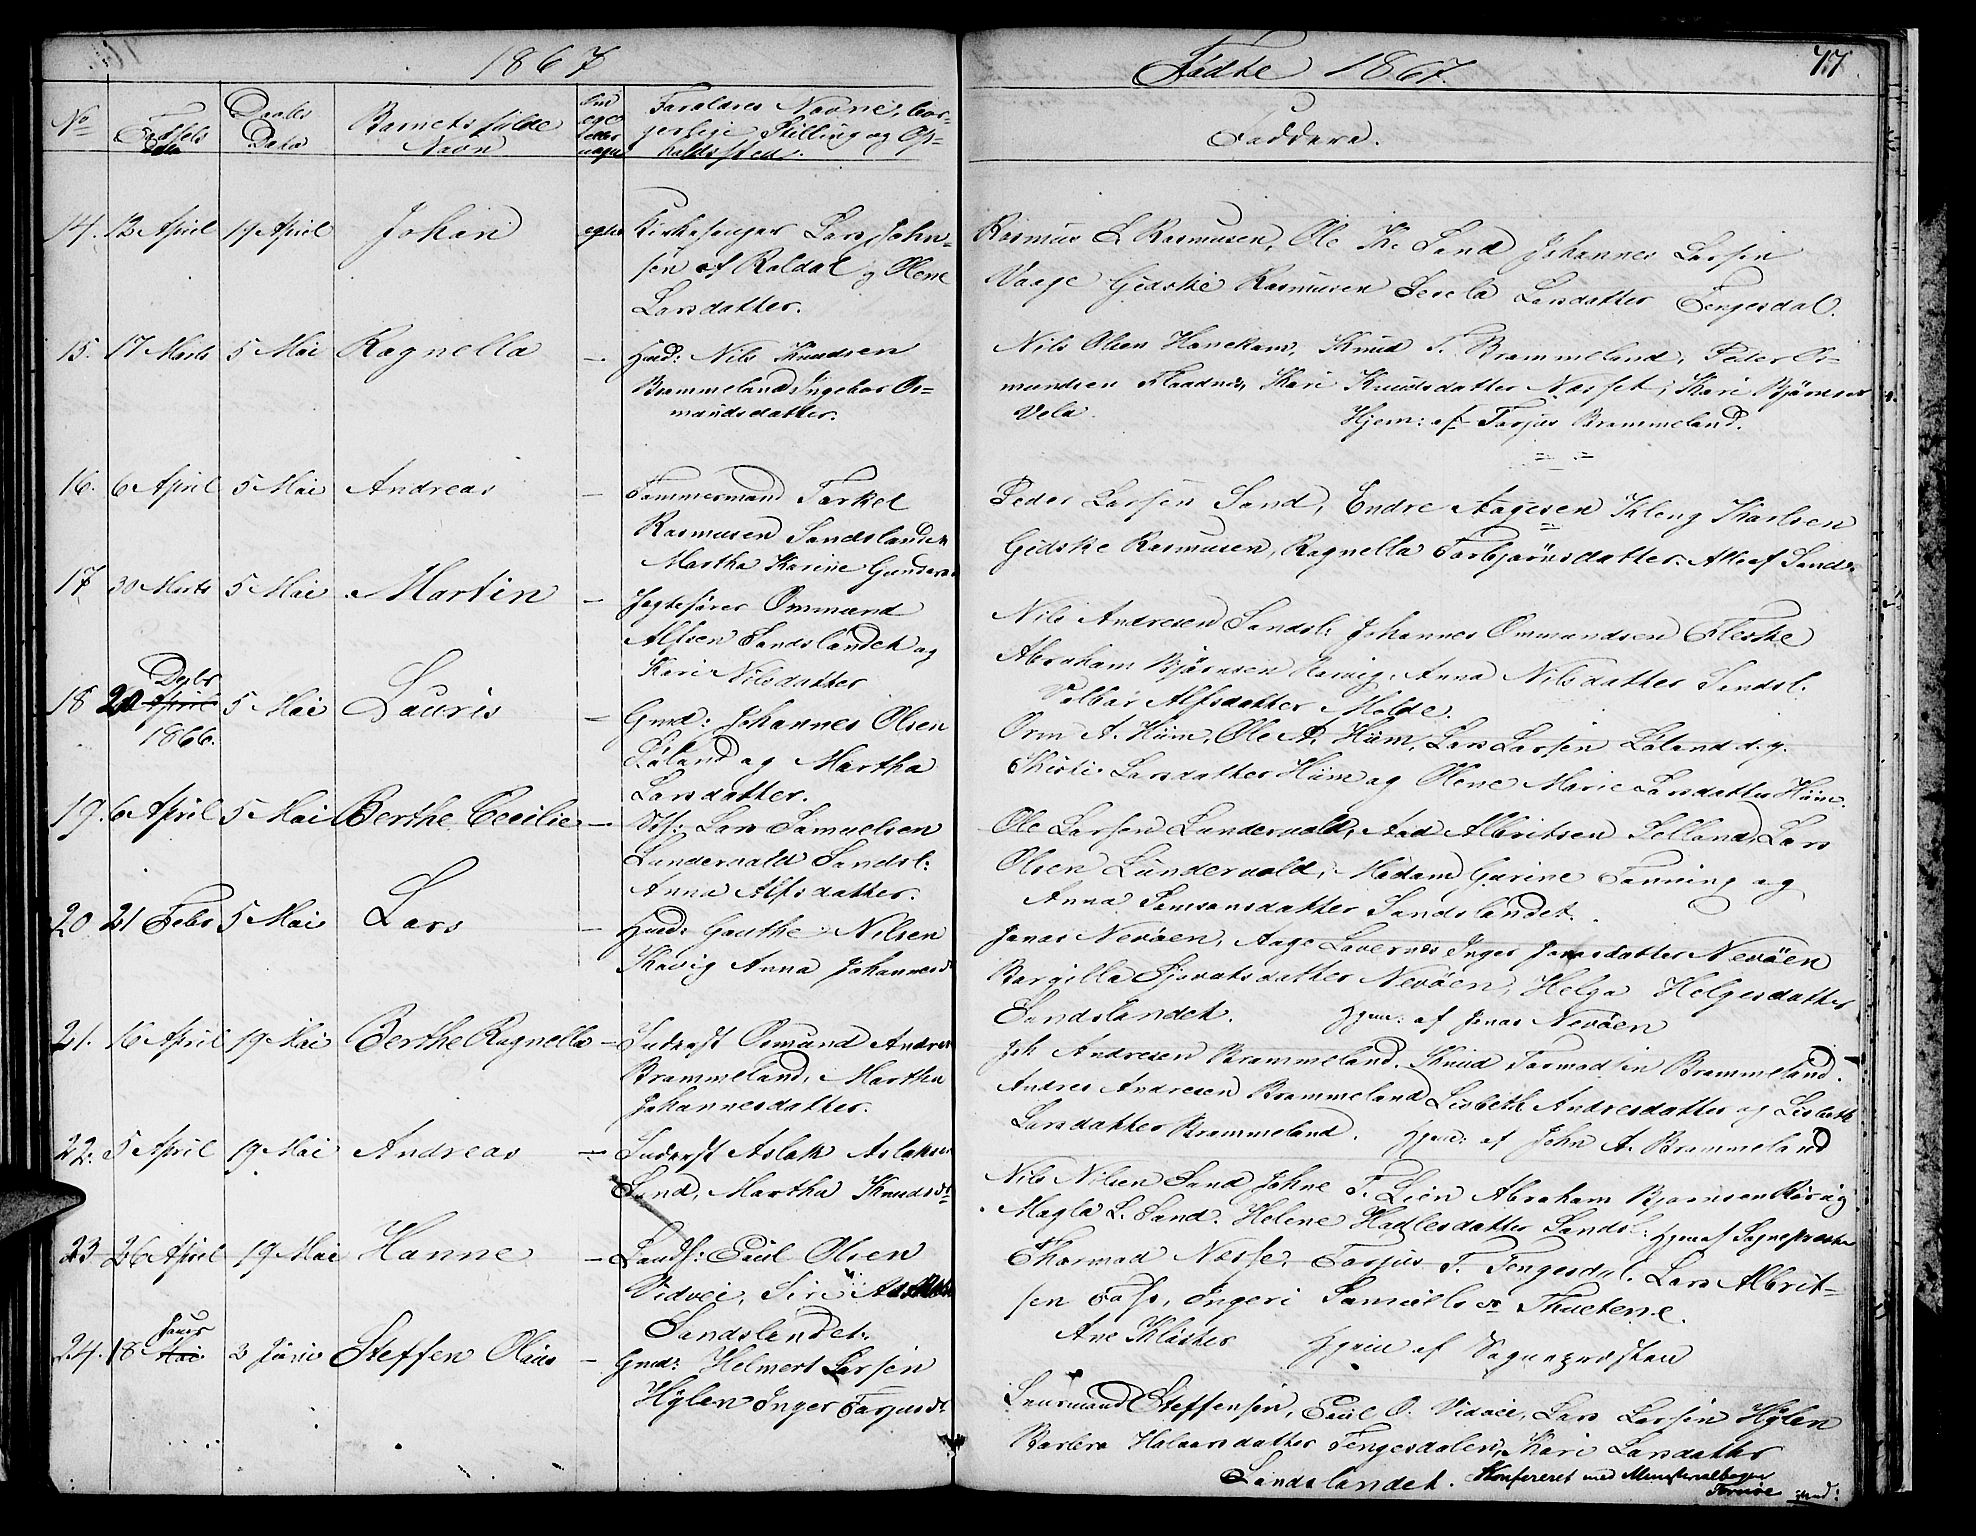 1867
Födte 1867.
77
No
Fødsels Data
Daabs Data
Barnets fulde Navn
Om egte eller uægte
Foraldres Navne, bor-
gerlige Stilling og Op-
holdssted.
Faddere.
14. 13 April 19 April Johan egte Kirkesanger Lars John-
sen af Roldal og Olene
Larsdatter.
Rasmus L Rasmusen, Ole K. Sand Johannes Larsen
Vaage Gidske Rasmusen Sesela Larsdatter Tengesdal.
15. 17 Marts 5 Mai Ragnella – Hmd: Nils Knudsen
Brommeland Ingebor Os-
mundsdatter.
Nils Olsen Hanekam, Knud T. Brommeland, Peder Os-
mundsen Flaadnes, Kari Knudsdatter Næsset, Kari Bjørnsen
Vela. Hjem: af Torjus Brommeland.
16. 6 April 5 Mai Andreas – Tømmermand Torkel
Rasmusen Sandslandet
Martha Karine Gunders
Peder Larsen Sand, Endre Aagesen Kleng Karlsen
Gidske Rasmusen, Ragnella Torbjörnsdatter. Alle af Sands:
17 30 Marts 5 Mai Martin – Jegtefører Ommund
Alfsen Sandslandet og
Kari Nilsdatter
Nils Andresen Sandsl: Johannes Ommundsen Fleske
Abraham Bjørnsen Rørvig, Anna Nilsdatter Sandsl.
Valbär Alfsdatter Molde.
18 20 Debr April 1866. 5 Mai Lauris – Gmd: Johannes Olsen
Lõland og Martha
Larsdatter.
Orm A. Hüm, Ole A. Hüm, Lars Larsen Löland d.y.
Kisti Larsdatter Hüm og Olene Marie Larsdatter Hüm.
19. 6 April 5 Mai Berthe Cecilie – Lars Samuelsen
Lundervald Sandsl:
Anna Alfsdatter.
Ole Larsen Lundervald, Aad Albritsen Selland, Lars
Olsen Lündervald, Madam Gurine Tanning og
Anna Samsonsdatter Sandslandet.
20. 21 Febr 5 Mai Lars – Hmd: Gauthe Nilsen
Skavig Anna Johannesd:
Jonas Nevöen, Aage Lovernes Inger Jonasdatter Nevöen
Borgilla Sjovatsdatter Nevöen, Helga Helgesdatter
Sandslandet. Hjem: af Jonas Nevöen
21. 16 April 19 Mai Berthe Ragnella – Inderst Osmund Andres
Brommeland, Martha
Johannesdatter.
Joh Andresen Brommeland, Knud Tormodsen Brommeland.
Andres Andresen Brommeland Lisbeth Andresdatter og Lisbeth
Larsdatter Brommeland. Hjem: af John A. Brommeland
22. 5 April 19 Mai Andreas – Inderst Aslak Aslaksen
Sand, Martha Knudsd:
Nils Nilsen Sand Johne T. Lien Abraham Bjørnsen Rörvig
Magla L. Sand. Helene Hadlesdatter Sandsl: Hjem af Sognepræsten
23 26 April 19 Mai Hanne – Paul Olsen
Vidvei, Siri
Sandslandet.
Thormod Næsse, Torjus T. Tengesdal. Lars Albrit-
sen Foss, Ingeri Samuelsd: Thuetene.
Ane Klöster Hjem af Sognepræsten
24. 18 Janr Mai 3 Juni Steffen Olaus – Gmd: Helmert Larsen
Hÿlen Inger Torjusd:
Steffensen, Paul O. Vidvei, Lars Larsen Hÿlen
Barbra Halvorsdatter Tengesdalen, Kari Larsdatter
Sandslandet. Konfereret med Ministerialbogen